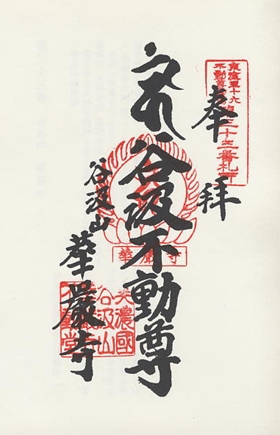 奉拝
東海三十六
不動尊
三十三番札所
谷汲不動尊
華厳寺
谷汲山
華厳寺
美濃國
谷汲山